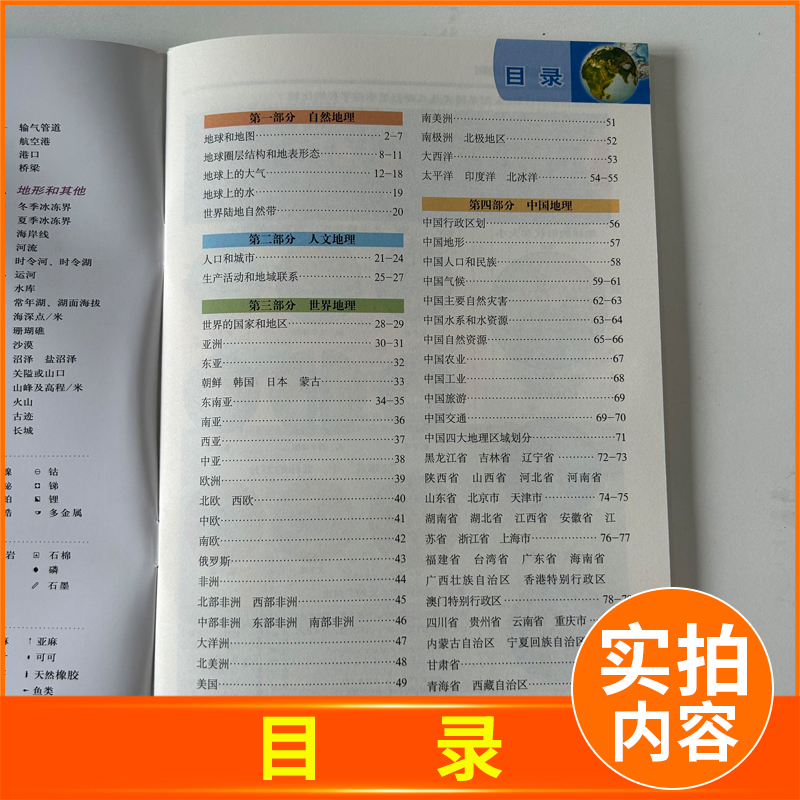 目 录
输气管道
航空港
港口
桥梁
地形和其他
冬季冰冻界
夏季冰冻界
海岸线
河流
时令河、时令湖
运河
水库
常年湖、湖面海拔
海深点/米
珊瑚礁
沙漠
沼泽 盐沼泽
关隘或山口
山峰及高程/米
火山
古迹
长城
钴
锑
锂
多金属
岩 石棉
磷
石墨
亚麻
可可
天然橡胶
鱼类
第一部分 自然地理
地球和地图 2-7
地球圈层结构和地表形态 8-11
地球上的大气 12-18
地球上的水 19
世界陆地自然带 20
第二部分 人文地理
人口和城市 21-24
生产活动和地域联系 25-27
第三部分 世界地理
世界的国家和地区 28-29
亚洲 30-31
东亚 32
朝鲜 韩国 日本 蒙古 33
东南亚 34-35
南亚 36
西亚 37
中亚 38
欧洲 39
北欧 西欧 40
中欧 41
南欧 42
俄罗斯 43
非洲 44
北部非洲 西部非洲 45
中部非洲 东部非洲 南部非洲 46
大洋洲 47
北美洲 48
美国 49
南美洲 51
南极洲 北极地区 52
大西洋 53
太平洋 印度洋 北冰洋 54-55
第四部分 中国地理
中国行政区划 56
中国地形 57
中国人口和民族 58
中国气候 59-61
中国主要自然灾害 62-63
中国水系和水资源 63-64
中国自然资源 65-66
中国农业 67
中国工业 68
中国旅游 69
中国交通 69-70
中国四大地理区域划分 71
黑龙江省 吉林省 辽宁省 72-73
陕西省 山西省 河北省 河南省
山东省 北京市 天津市 74-75
湖南省 湖北省 江西省 安徽省 江
苏省 浙江省 上海市 76-77
福建省 台湾省 广东省 海南省
广西壮族自治区 香港特别行政区
澳门特别行政区
四川省 贵州省 云南省 重庆市
内蒙古自治区 宁夏回族自治区
甘肃省
青海省 西藏自治区
实拍
内容
目 录